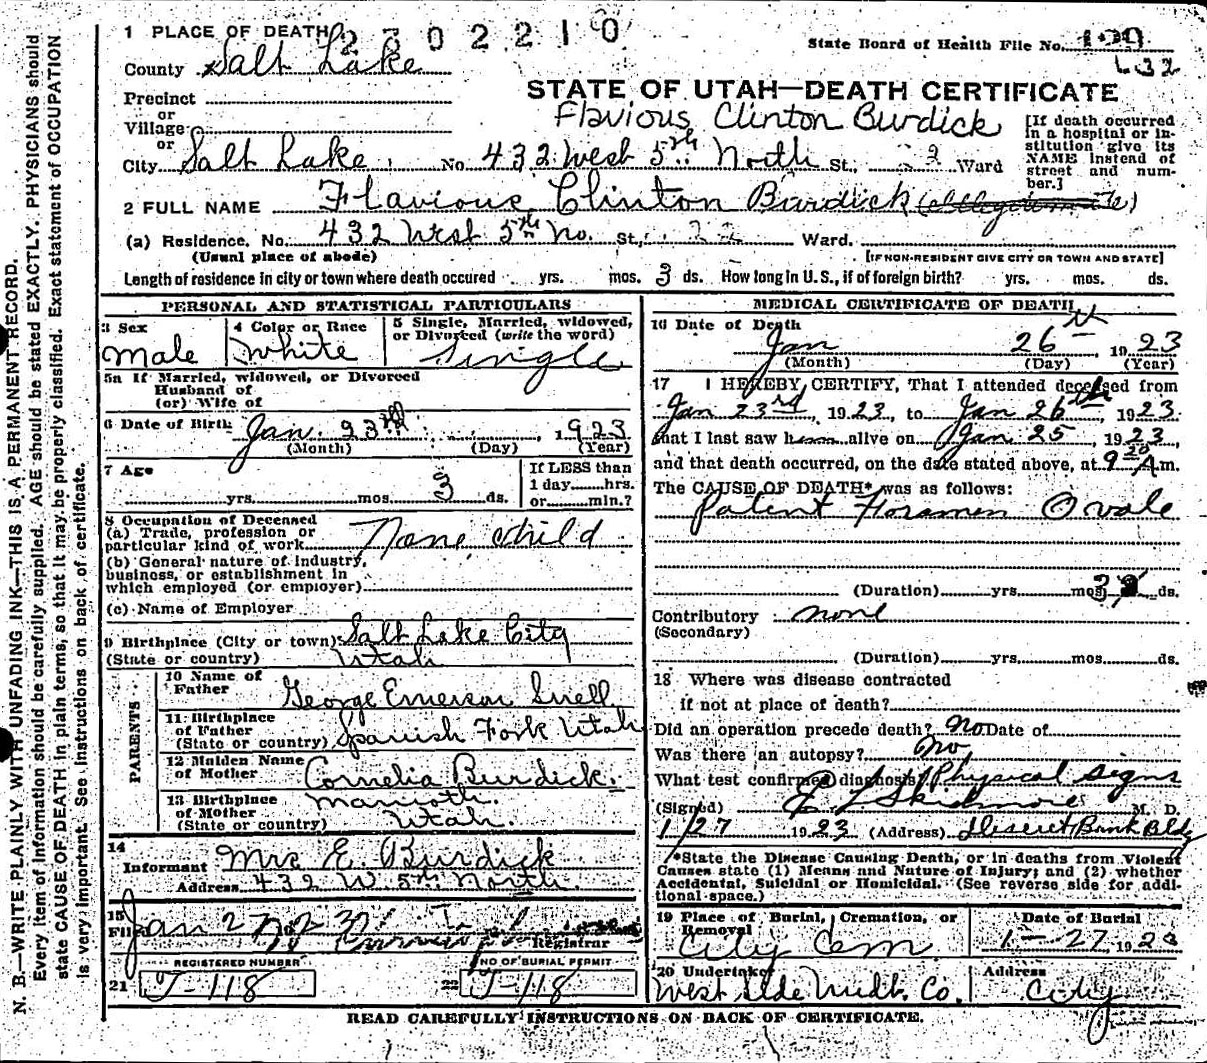 N. B.—WRITE PLAINLY WITH UNFADING INK—THIS IS A PERMANENT RECORD.
Every item of information should be carefully supplied. AGE should be stated EXACTLY. PHYSICIANS should
state CAUSE OF DEATH in plain terms, so that it may be properly classified. Exact statement of OCCUPATION
is very important. See instructions on back of certificate.
1 PLACE OF DEATH
2302210
State Board of Health File No. 139
L32
County Salt Lake
STATE OF UTAH—DEATH CERTIFICATE
Precinct
or
Village
or
Flavious Clinton Burdick
[If death occurred in a hospital or institution give its NAME instead of street and number.]
City Salt Lake No. 432 West 5th North St., 2 Ward
2 FULL NAME Flavious Clinton Burdick
(a) Residence. No. 432 West 5th No. St., 22 Ward.
(Usual place of abode) [IF NON-RESIDENT GIVE CITY OR TOWN AND STATE]
Length of residence in city or town where death occured yrs. mos. 3 ds. How long in U.S., if of foreign birth? yrs. mos. ds.
PERSONAL AND STATISTICAL PARTICULARS
3 Sex
Male
4 Color or Race
White
5 Single, Married, widowed, or Divorced (write the word)
Single
5a If Married, widowed, or Divorced
Husband of
(or) Wife of
6 Date of Birth Jan. 23rd 1923
(Month) (Day) (Year)
7 Age
yrs. mos. 3 ds.
If LESS than
1 day hrs.
or min.?
8 Occupation of Deceased
(a) Trade, profession or
particular kind of work None, child
(b) General nature of industry,
business, or establishment in
which employed (or employer)
(c) Name of Employer
9 Birthplace (City or town) Salt Lake City
(State or country) Utah
PARENTS
10 Name of
Father George Emerson Snell
11 Birthplace
of Father
(State or country) Spanish Fork Utah
12 Maiden Name
of Mother Cornelia Burdick.
13 Birthplace
of Mother Marrioth.
(State or country) Utah.
14
Informant Mrs E. Burdick
Address 432 W. 5th North.
15
Filed Jan 27
Registrar
REGISTERED NUMBER
21 J-118
NO OF BURIAL PERMIT
22 J-118
MEDICAL CERTIFICATE OF DEATH
16 Date of Death
Jan 26th 1923
(Month) (Day) (Year)
17 I HEREBY CERTIFY, That I attended deceased from
Jan 23rd, 1923, to Jan 26th 1923.
that I last saw him alive on Jan 25 1923,
and that death occurred, on the date stated above, at 9 30 A.m.
The CAUSE OF DEATH* was as follows:
Patent Foramen Ovale
(Duration) yrs. mos. 3 ds.
Contributory none
(Secondary)
(Duration) yrs. mos. ds.
18 Where was disease contracted
if not at place of death?
Did an operation precede death? No Date of
Was there an autopsy? No,
What test confirmed diagnosis? Physical signs
(Signed) E L Skidmore M. D.
1/27 1923 (Address) Deseret Bank Bldg
*State the Disease Causing Death, or in deaths from Violent
Causes state (1) Means and Nature of Injury; and (2) whether
Accidental, Suicidal or Homicidal. (See reverse side for addi-
tional space.)
19 Place of Burial, Cremation, or
Removal
City Cem
Date of Burial
1-27 1923
20 Undertaker
West Side Undt. Co.
Address
City
READ CAREFULLY INSTRUCTIONS ON BACK OF CERTIFICATE.